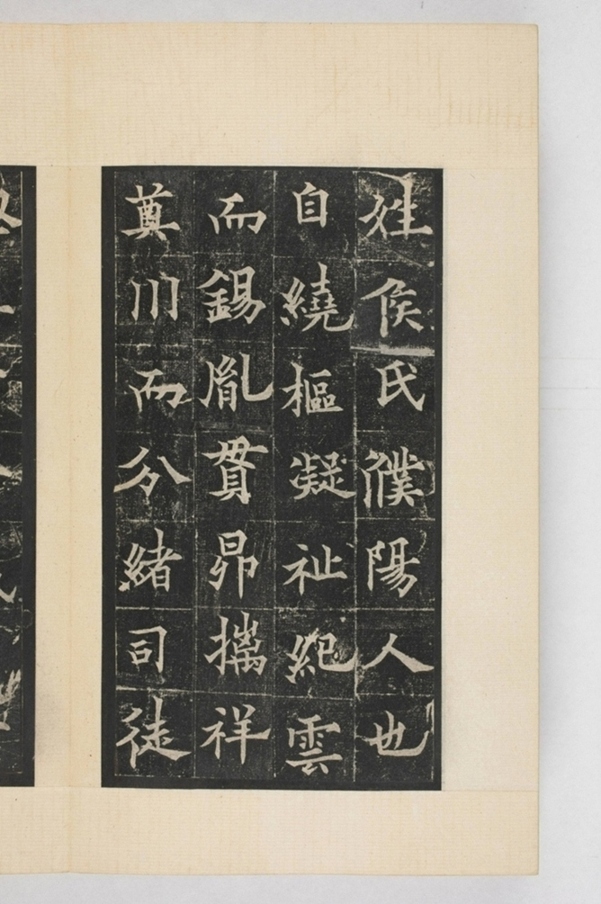 姓侯氏濮陽人也
自繞樞凝祉紀雲
而錫胤貫昴摛祥
奠川而分緒司徒